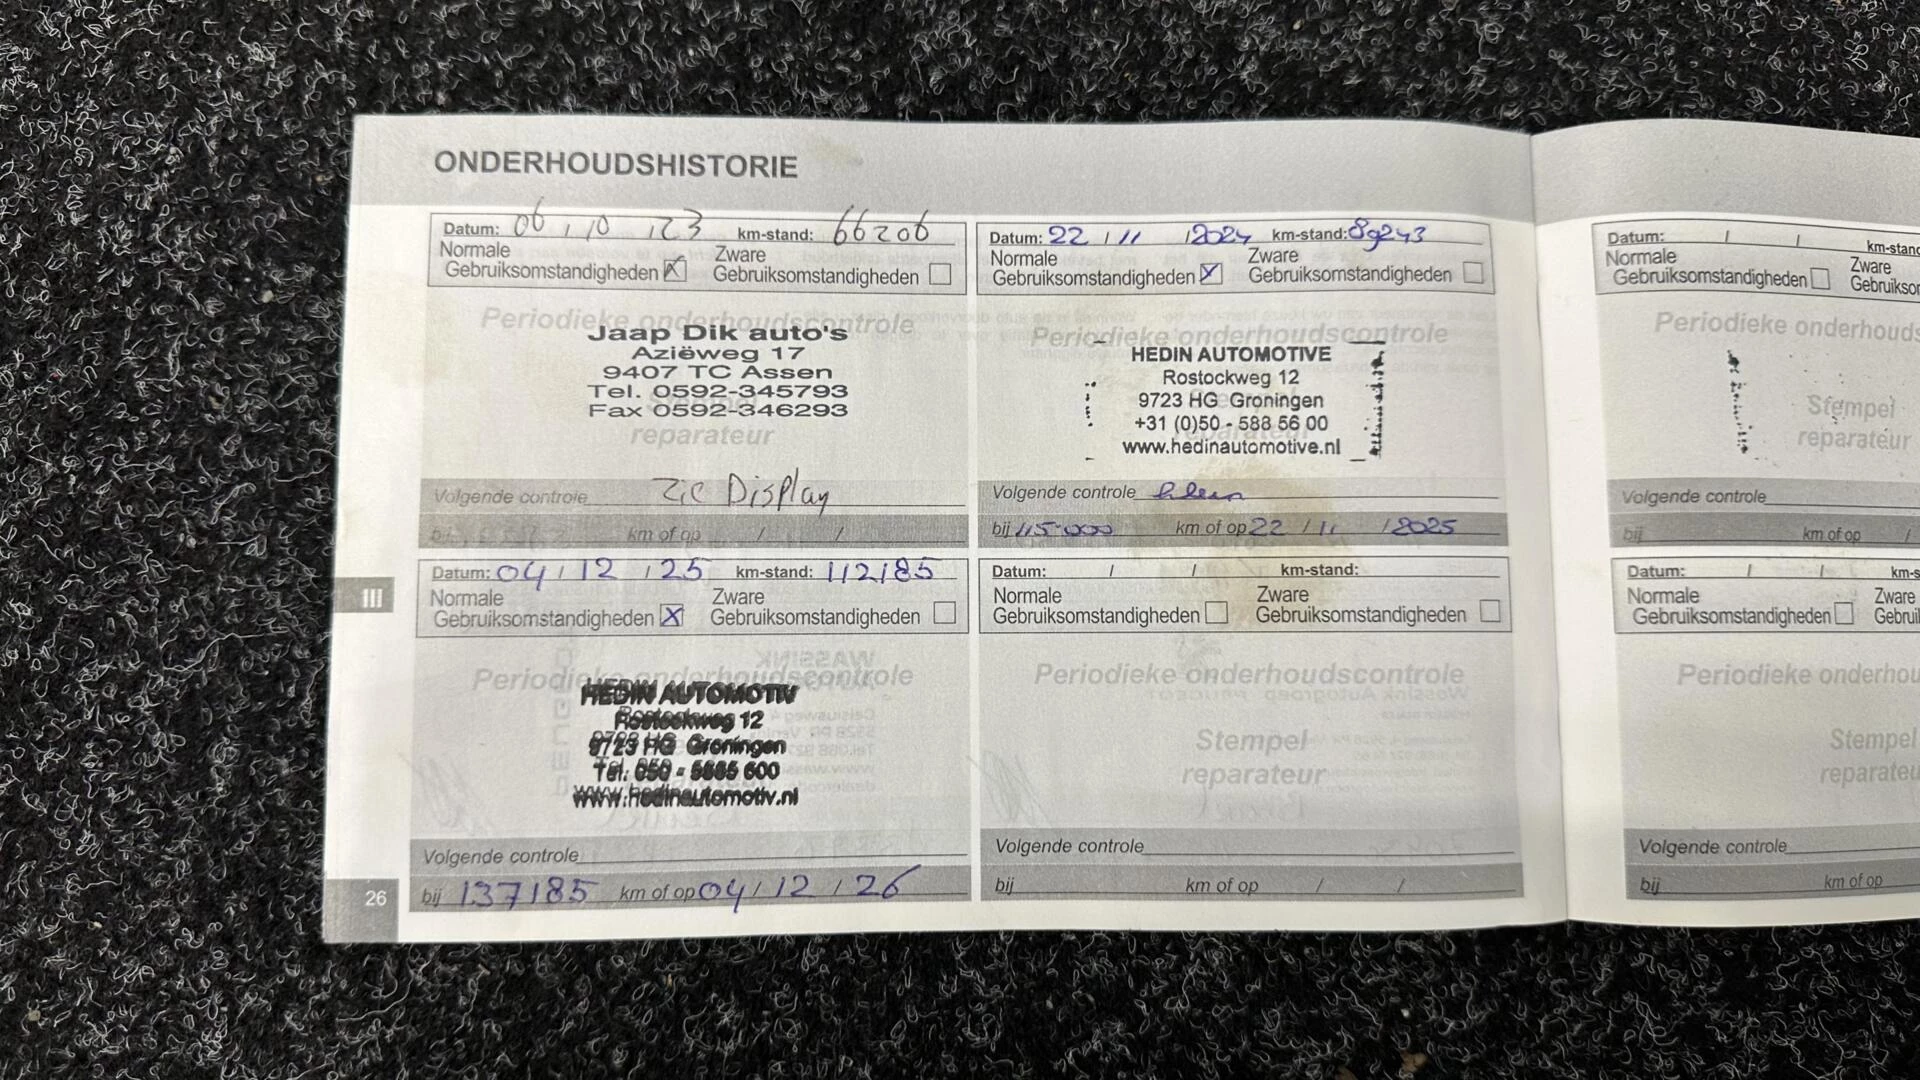 ONDERHOUDSHISTORIE
Datum: 06 / 10 / 23 km-stand: 66206
Normale
Gebruiksomstandigheden X Zware
Gebruiksomstandigheden
Periodieke onderhoudscontrole
Jaap Dik auto's
Aziëweg 17
9407 TC Assen
Tel. 0592-345793
Fax 0592-346293
reparateur
Volgende controle Zie Display
bij km of op / /
Datum: 22 / 11 / 2024 km-stand: 89243
Normale
Gebruiksomstandigheden X Zware
Gebruiksomstandigheden
Periodieke onderhoudscontrole
HEDIN AUTOMOTIVE
Rostockweg 12
9723 HG Groningen
+31 (0)50 - 588 56 00
reparateur
www.hedinautomotive.nl
Volgende controle
bij 115.000 km of op 22 / 11 / 2025
III
Datum: 04 / 12 / 25 km-stand: 112185
Normale
Gebruiksomstandigheden X Zware
Gebruiksomstandigheden
Periodieke onderhoudscontrole
HEDIN AUTOMOTIV
Rostockweg 12
9723 HG Groningen
Tel. 050 - 5885 600
www.hedinautomotiv.nl
Volgende controle
bij 137185 km of op 04 / 12 / 26
Datum: / / km-stand:
Normale
Gebruiksomstandigheden Zware
Gebruiksomstandigheden
Periodieke onderhoudscontrole
Stempel
reparateur
Volgende controle
bij km of op / /
26
Datum: / / km-stand
Normale
Gebruiksomstandigheden Zware
Gebruiksom
Periodieke onderhouds
Stempel
reparateur
Volgende controle
bij km of op /
Datum: / / km-s
Normale
Gebruiksomstandigheden Zware
Gebruik
Periodieke onderhou
Stempel
reparateu
Volgende controle
bij km of op